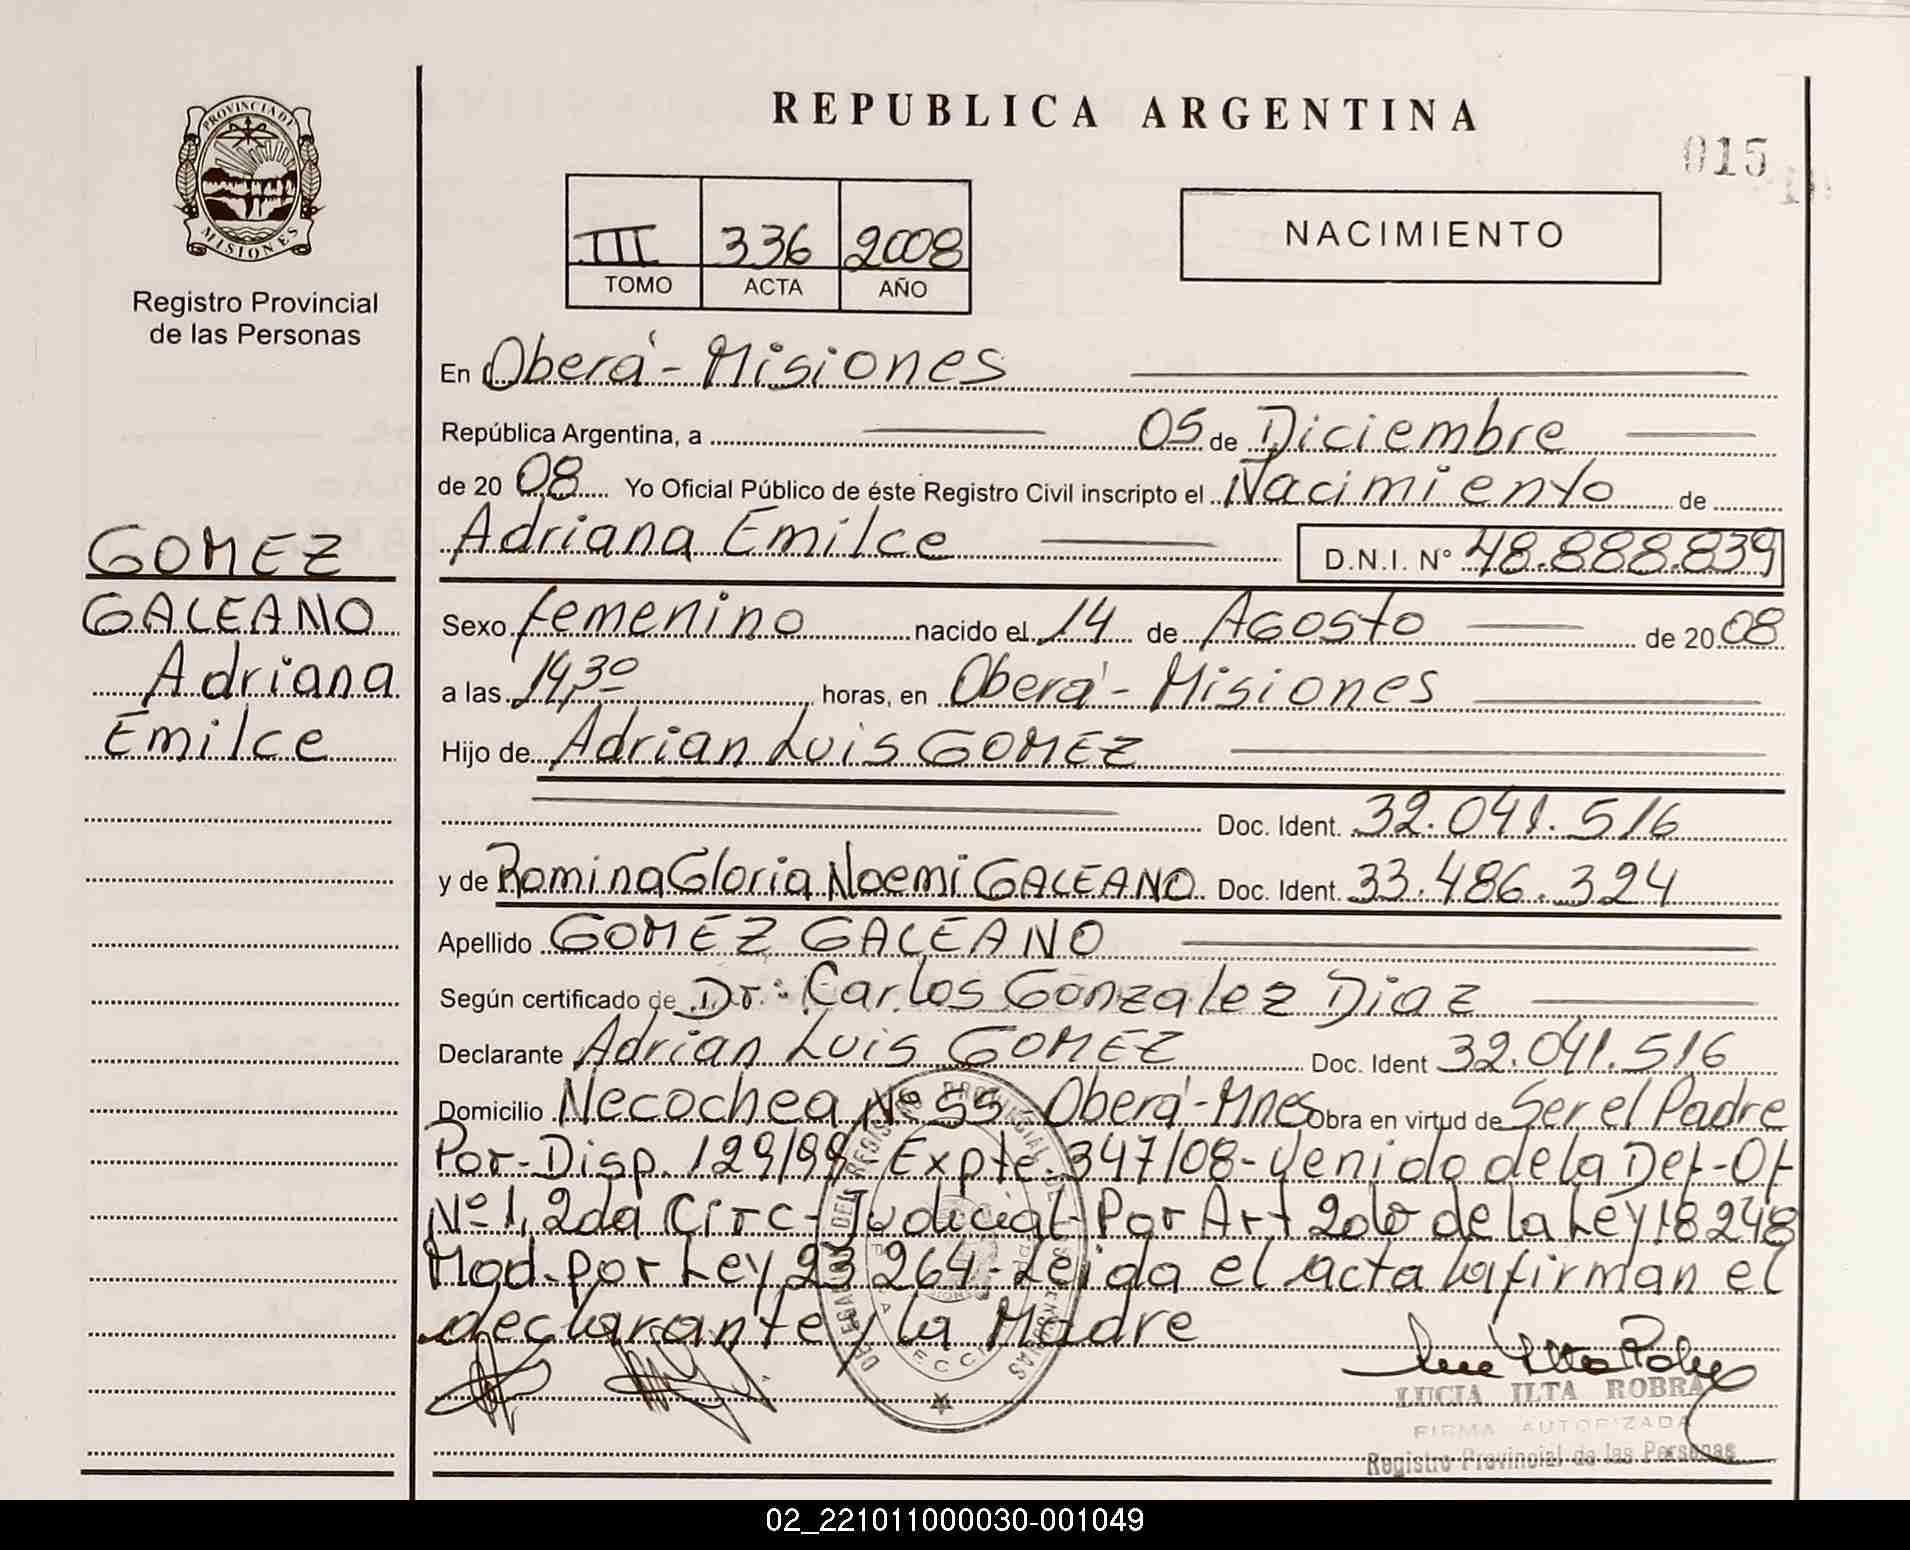 REPUBLICA ARGENTINA
015
PROVINCIA DE
MISIONES
Registro Provincial
de las Personas
III 336 2008
TOMO ACTA AÑO
NACIMIENTO
En Oberá - Misiones
República Argentina, a 05 de Diciembre
de 20 08 Yo Oficial Público de éste Registro Civil inscripto el Nacimiento de
Adriana Emilce D.N.I. N° 48.888.839
GOMEZ
GALEANO
Adriana
Emilce
Sexo femenino nacido el 14 de Agosto de 20 08
a las 14,30 horas, en Oberá - Misiones
Hijo de Adrian Luis GOMEZ
Doc. Ident. 32.041.516
y de Romina Gloria Noemi GALEANO Doc. Ident. 33.486.324
Apellido GOMEZ GALEANO
Según certificado de Dr: Carlos Gonzalez Diaz
Declarante Adrian Luis GOMEZ Doc. Ident 32.041.516
Domicilio Necochea Nº 55 Oberá - Mnes Obra en virtud de Ser el Padre
Por - Disp. 129/99 Expte. 347/08 - Venido de la Def - Of
Nº 1, 2da Circ - Judicial - Por Art 2do de la Ley 18248
Mod. por Ley 23264 - Leida el acta la firman el
declarante y la Madre
LUCIA ILTA ROBRA
FIRMA AUTORIZADA
Registro Provincial de las Personas
02_221011000030-001049